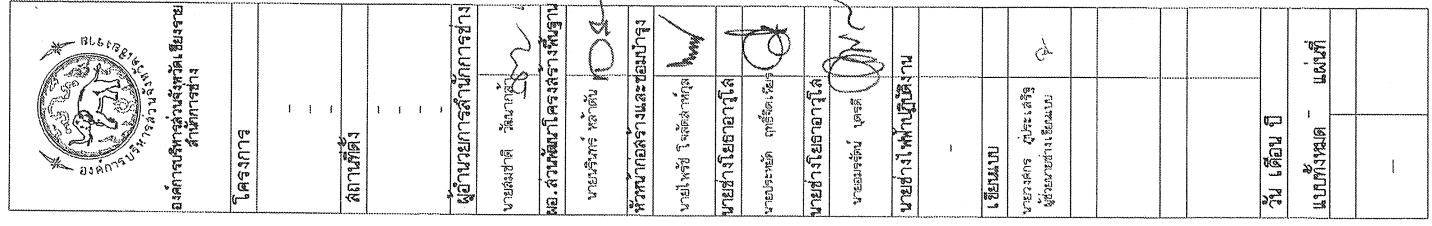 องค์การบริหารส่วนจังหวัดเชียงราย
องค์การบริหารส่วนจังหวัดเชียงราย
สำนักการช่าง
โครงการ
-
-
-
สถานที่ตั้ง
-
-
-
-
ผู้อำนวยการสำนักการช่าง
นายสมชาติ วัฒนากล้า
ผอ.ส่วนพัฒนาโครงสร้างพื้นฐาน
นายนรินทร์ หล้าตัน
หัวหน้าก่อสร้างและซ่อมบำรุง
นายไพรัช โฆลัดลาหกุล
นายช่างโยธาอาวุโส
นายประหยัด ฤทธิ์จิตเวียร
นายช่างโยธาอาวุโส
นายอมรรัตน์ บุตรดี
นายช่างไฟฟ้าปฏิบัติงาน
-
เขียนแบบ
นายวงศกร ภูประเสริฐ
ผู้ช่วยนายช่างเขียนแบบ
วัน เดือน ปี
แบบทั้งหมด - แผ่นที่
-